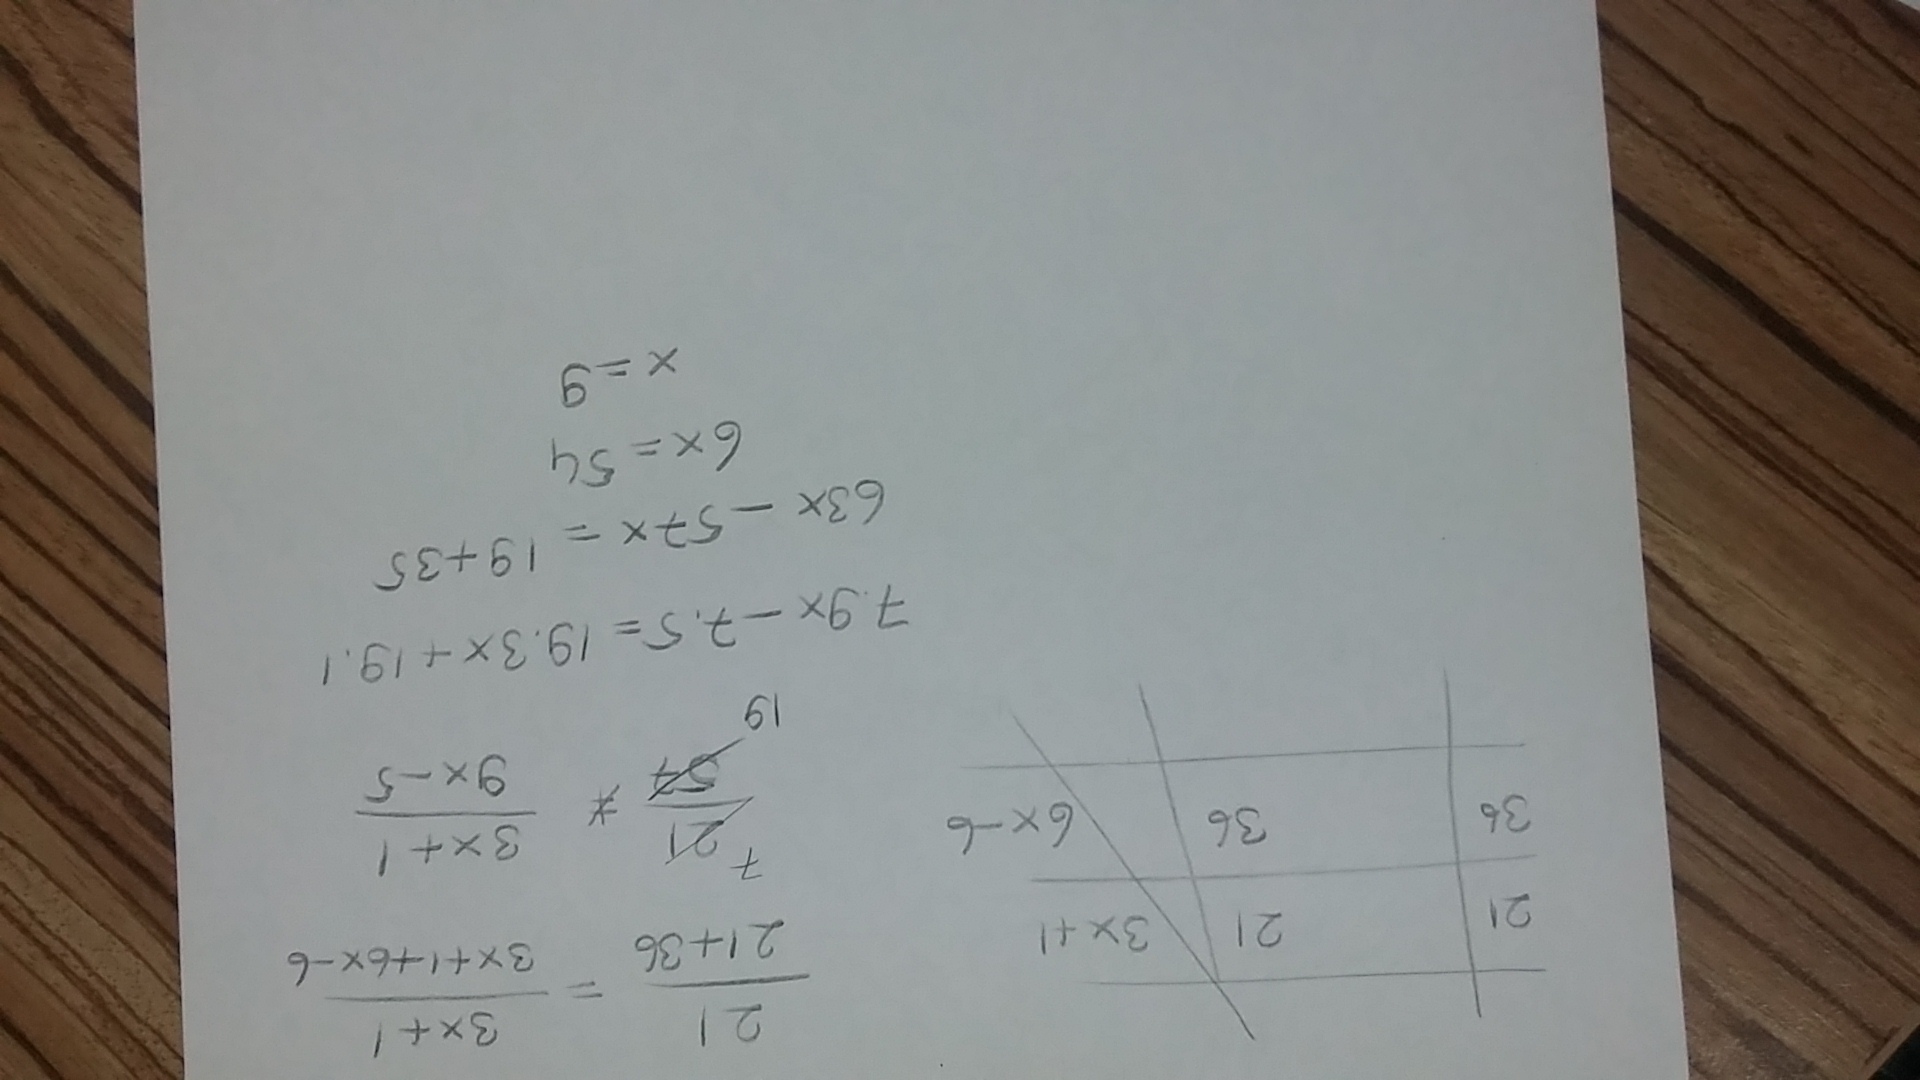 21 21 3x+1
36 36 6x-6
21 = 3x+1
21+36 3x+1+6x-6
7 21 * 3x+1
57 9x-5
19
7.9x-7.5=19.3x+19.1
63x-57x=19+35
6x=54
x=9